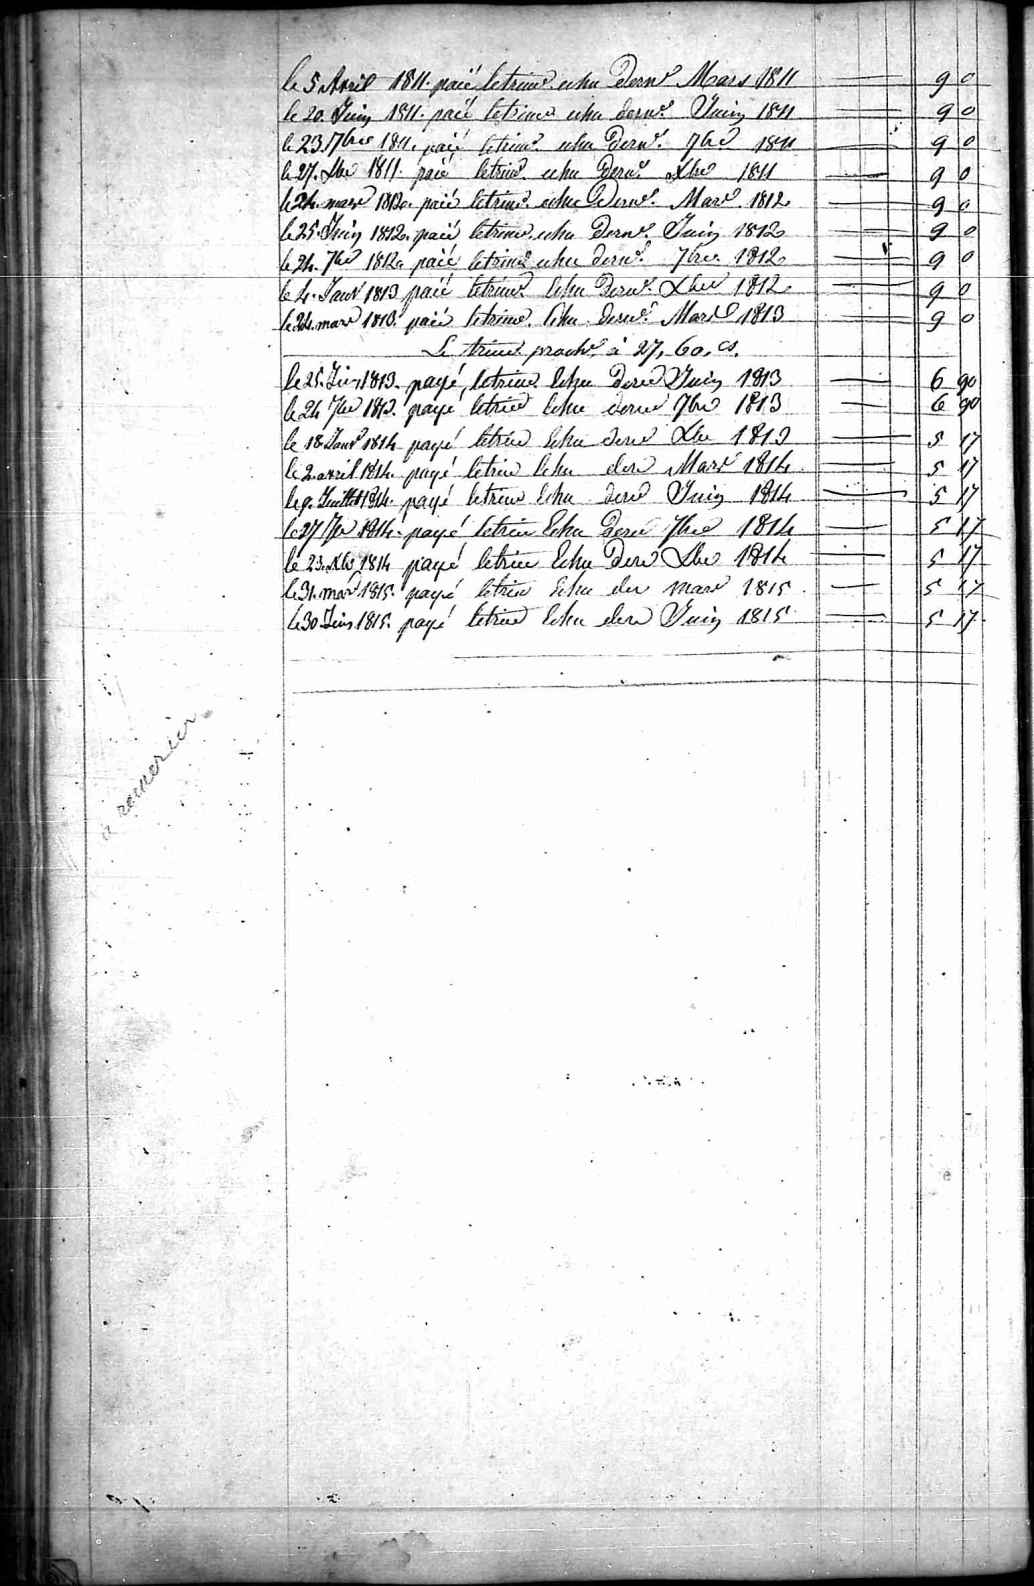 le 5 Avril 1811. paié le trime echu dernr Mars 1811 9 0
le 20 Juin 1811. paié le trime echu dernr. Juin 1811 9 0
le 23. 7bre 1811. paié le trime. echu dernr. 7bre 1811 9 0
le 27. Xbre 1811. paié le trime. echu dernr. Xbre 1811 9 0
le 24. mars 1812. paié le trime. echu dernr. Mars 1812 9 0
le 25. Juin 1812. paié le trime. echu dernr. Juin 1812 9 0
le 24. 7bre 1812. paié le trime echu dernr. 7bre. 1812 9 0
le 4. Janr 1813 paié le trime. Echu dernr. Xbre 1812 9 0
le 24. mars 1813. paié le trime. Echu dernr. Mars 1813 9 0
Le trime proch. à 27, 60, cs.
le 25. Juin 1813. payé le trime Echu derne Juin 1813 6 90
le 24 7bre 1813. payé le trime Echu derne 7bre 1813 6 90
le 18 Janr 1814 payé le trime Echu derne Xbre 1813 5 17
le 2 avril 1814. payé le trime Echu dere Mars 1814 5 17
le 9. Juillet 1814. payé le trime Echu dere Juin 1814 5 17
le 27 7bre 1814. payé le trime Echu derne 7bre 1814 5 17
le 23. Xbre 1814 payé le trime Echu dere Xbre 1814 5 17
le 31. mars 1815. payé le trime Echu der mars 1815 5 17
le 30 Juin 1815. payé le trime Echu dere Juin 1815 5 17
a